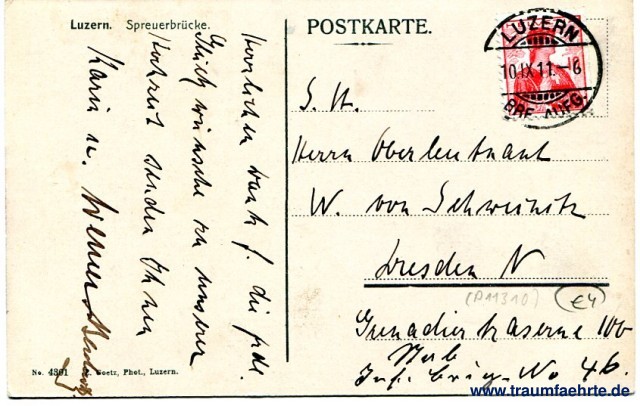 Luzern. Spreuerbrücke.
POSTKARTE.
LUZERN
10.IX.11.–6
BRF. AUFG.
Herzlichen Dank f. die frdl.
Glückwünsche zu unserer
Hochzeit senden Ihnen
Karin u. Werner
S. H.
Herrn Oberleutnant
W. von Schweinitz
Dresden N
(P11310)
€4
Grenadierkaserne 100
Stab
Inf. Brig. No 46.
No. 4391 Goetz, Phot., Luzern.
www.traumfaehrte.de